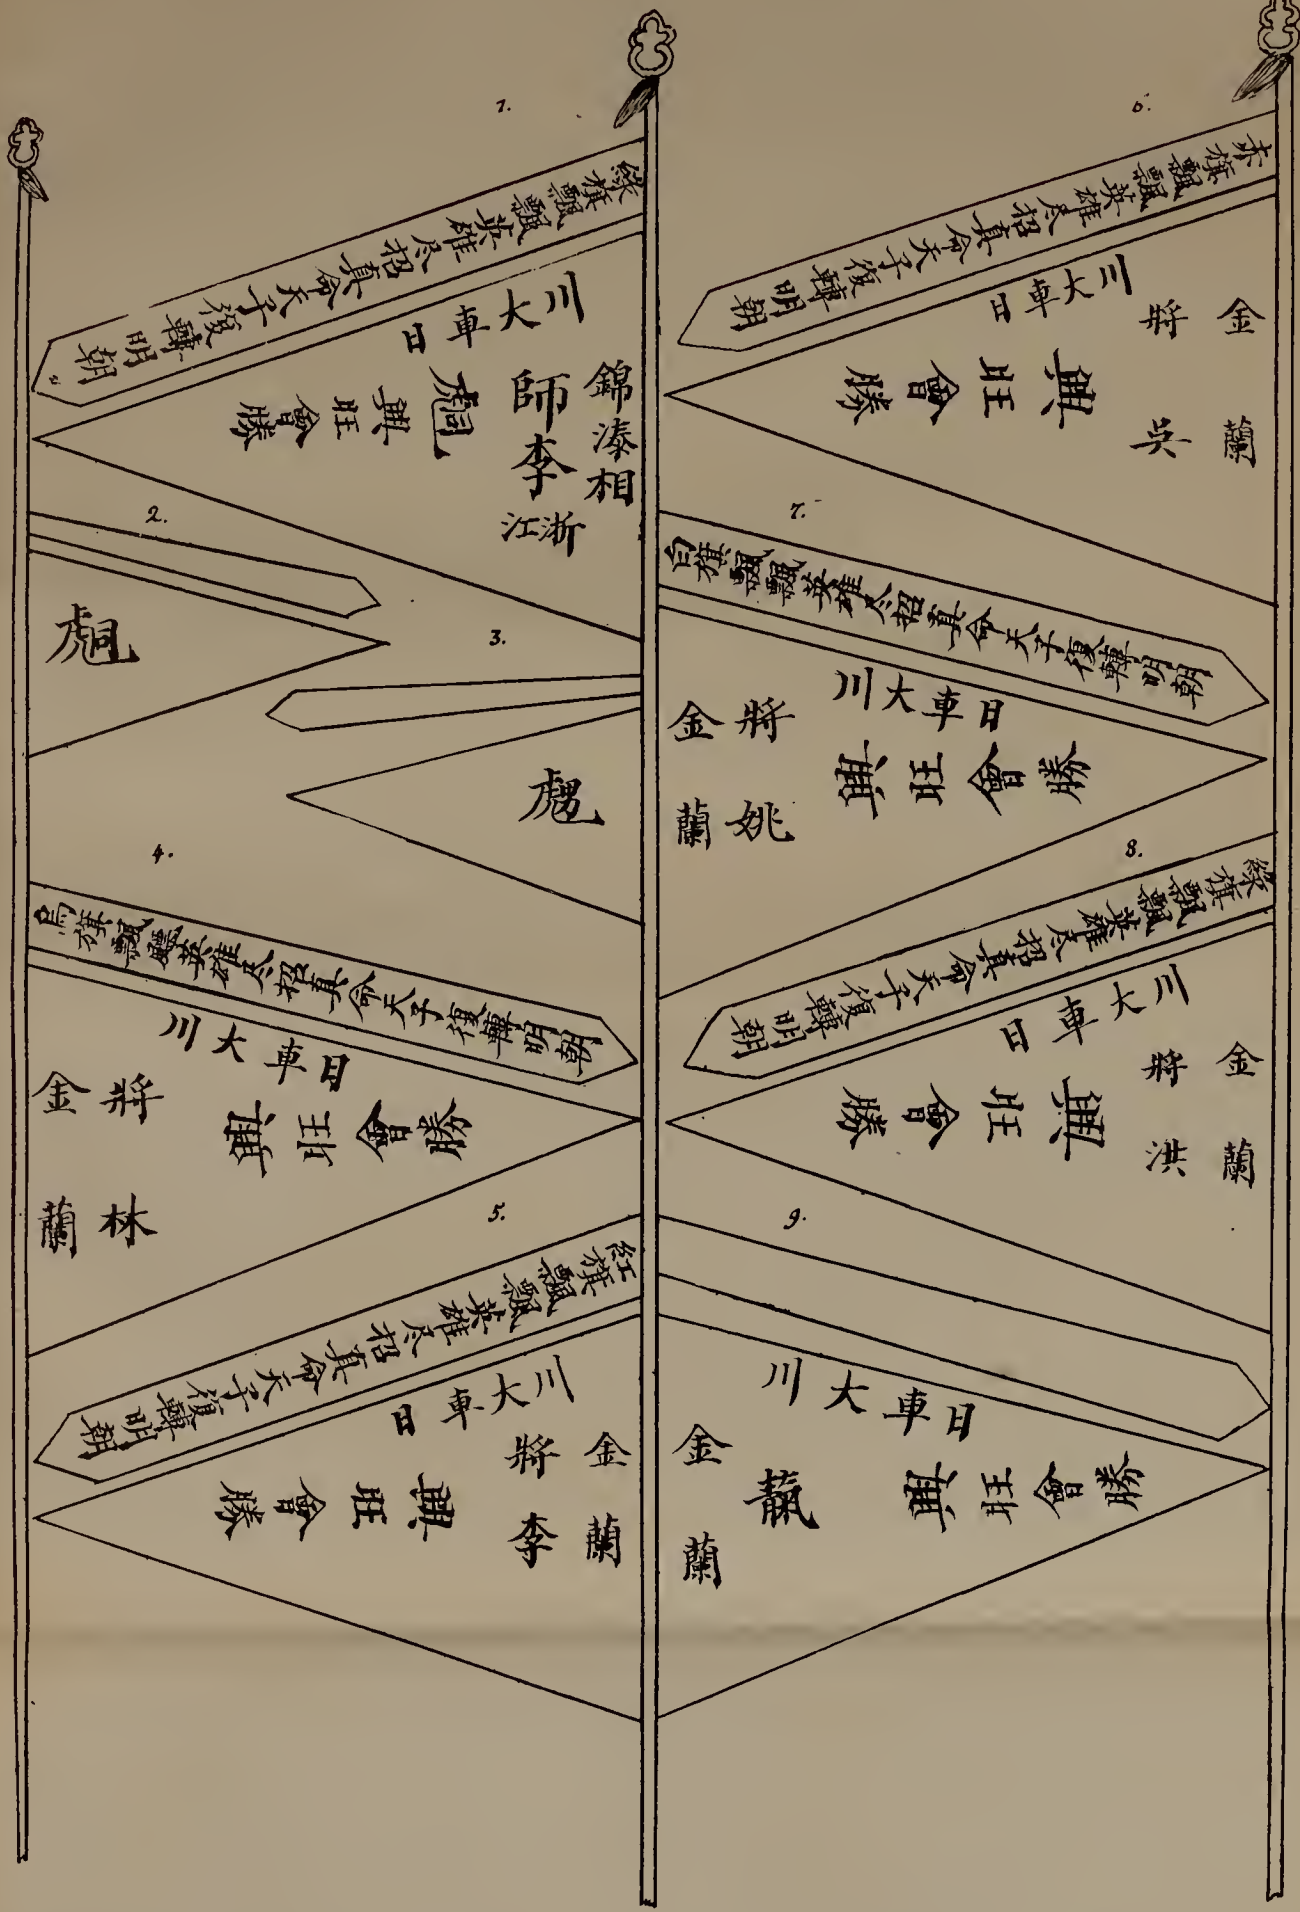 1.
綠旗飄飄英雄尽招真命天子復轉明朝
川大車日
錦溙相
師李
浙江
興旺會勝
2.
3.
4.
烏旗飄飄英雄尽招真命天子復轉明朝
川大車日
金蘭
將林
興旺會勝
5.
紅旗飄飄英雄尽招真命天子復轉明朝
川大車日
金蘭
將李
興旺會勝
6.
赤旗飄飄英雄尽招真命天子復轉明朝
川大車日
金蘭
將吳
興旺會勝
7.
白旗飄飄英雄尽招真命天子復轉明朝
川大車日
金蘭
將姚
興旺會勝
8.
綠旗飄飄英雄尽招真命天子復轉明朝
川大車日
金蘭
將洪
興旺會勝
9.
川大車日
金蘭
興旺會勝